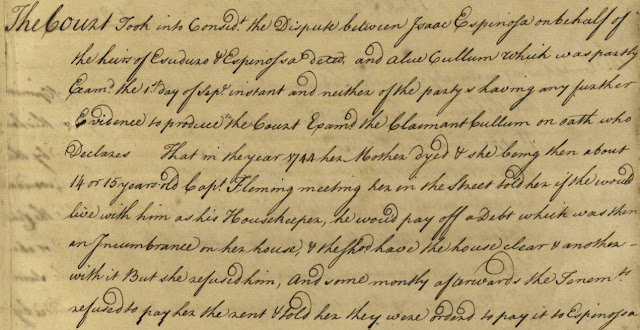 The Court Took into Consid.t the Dispute between Isaac Espinosa on behalf of
the heirs of Esuduro & Espinosa deced. and Alue Cullum Which was partly
Exam.d the 1.st day of Sep.r instant and neither of the partys having any further
Evidence to produce the Court Exam.d the Claimant Cullum on oath who
Declares That in the year 1744 her Mother dyed & she being then about
14 or 15 years old Cap.t Fleming meeting her in the Street told her if she would
live with him as his Housekeeper, he would pay off a Debt which was then
an Incumbrance on her house, & she shod have the house clear & another
with it But she refused him, And some months afterwards the Tenem.ts
refused to pay her the rent & told her they were orderd to pay it to Espinosa